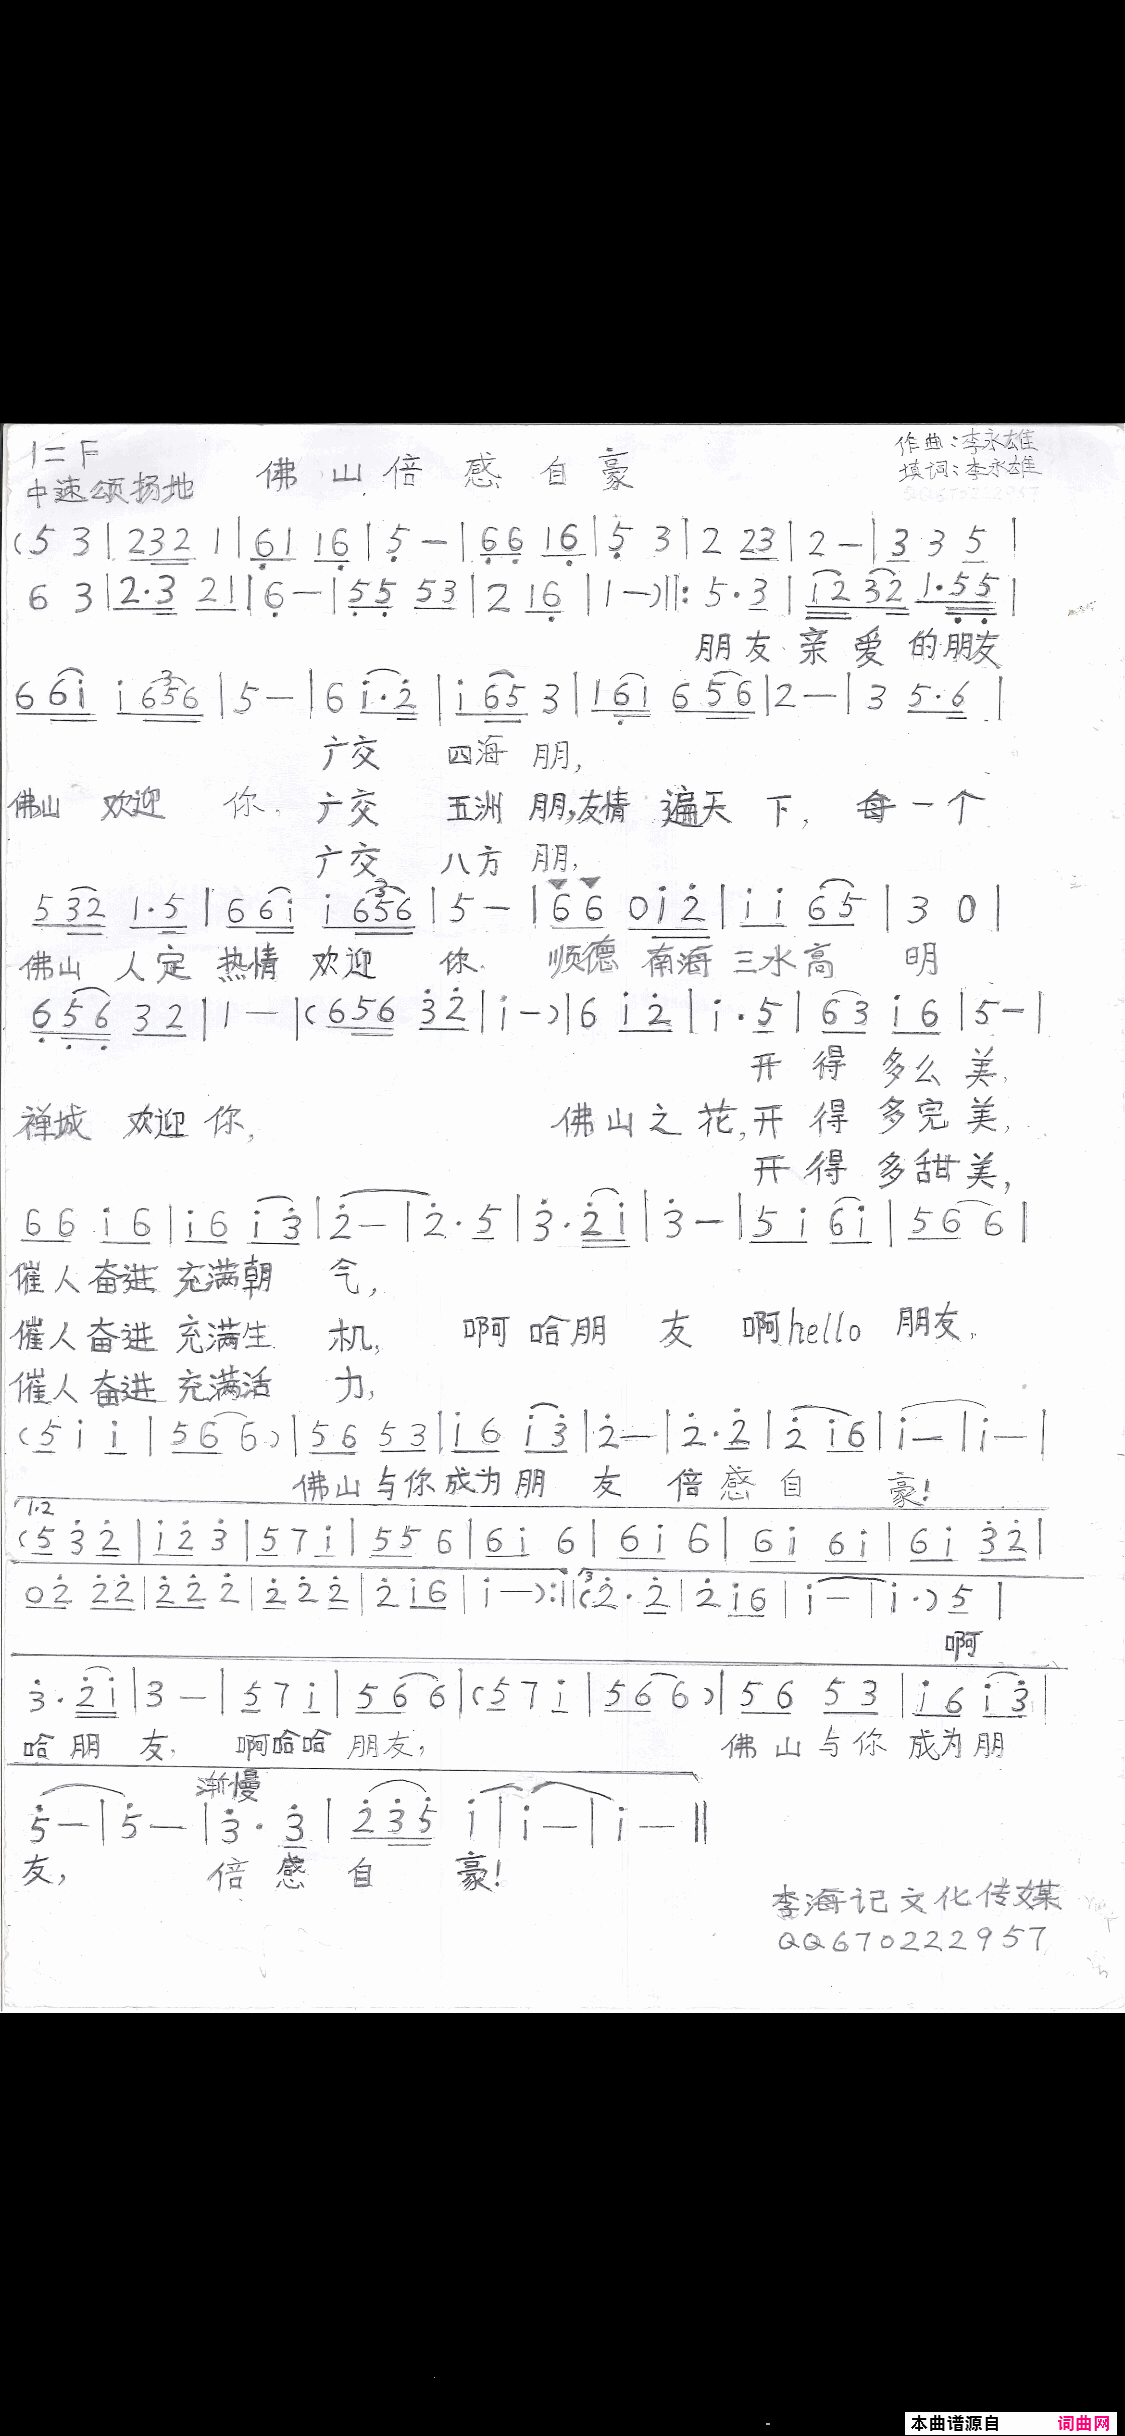 1=F
中速颂扬地
佛山倍感自豪
作曲:李永雄
填词:李永雄
QQ670222957
(5 3|232 1|61 16|5 —|66 16|5 3|2 23|2 —|3 3 5|
6 3|2·3 21|6 —|55 53|2 16|1 —)‖: 5·3|i2 32 1·55|
朋友 亲爱的朋友
6 6i i 656|5 —|6 i·2|i 65 3|1 61 6 56|2 —|3 5·6|
广交 四海 朋,
佛山 欢迎 你. 广交 五洲 朋,友情 遍天 下, 每一个
广交 八方 朋,
5 32 1·5|6 6i i 656|5 —|66 0i2|ii 65|3 0|
佛山 人定 热情 欢迎 你. 顺德 南海 三水高 明
656 32|1 —|(656 32|i —)|6 i2|i·5|63 i6|5 —|
开得多么美,
禅城 欢迎你, 佛山之花,开得多完美,
开得多甜美,
66 i6|i6 i3|2 —|2·5|3·2i|3 —|5 i 6i|56 6|
催人奋进 充满朝 气,
催人奋进 充满生 机, 啊哈朋 友 啊hello 朋友,
催人奋进 充满活 力,
(5 i i|56 6)|56 53|i6 i3|2 —|2·2|2 i6|i —|i —|
佛山与你成为朋 友 倍感自 豪!
1.2
(5 3 2|i2 3|57 i|55 6|6i 6|6i 6|6i 6i|6i 32|
02 22|22 2|22 2|2 i6|i —):‖3(2·2|2 i6|i —|i·) 5|
啊
3·2i|3 —|57 i|56 6|(57 i|56 6)|56 53|i6 i3|
哈朋 友, 啊哈哈 朋友, 佛山与你 成为朋
渐慢
5 —|5 —|3·3|235 i|i —|i —‖
友, 倍感自 豪!
李海记文化传媒
QQ670222957
本曲谱源自 词曲网